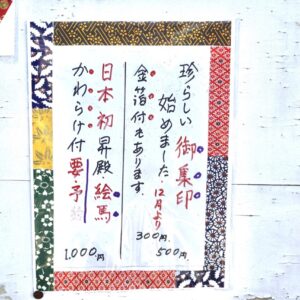 珍らしい御菓印
始めました。12月より
500円、
金箔付もあります。
300円、
日本初昇殿・絵馬
かわらけ付要予約
1,000円